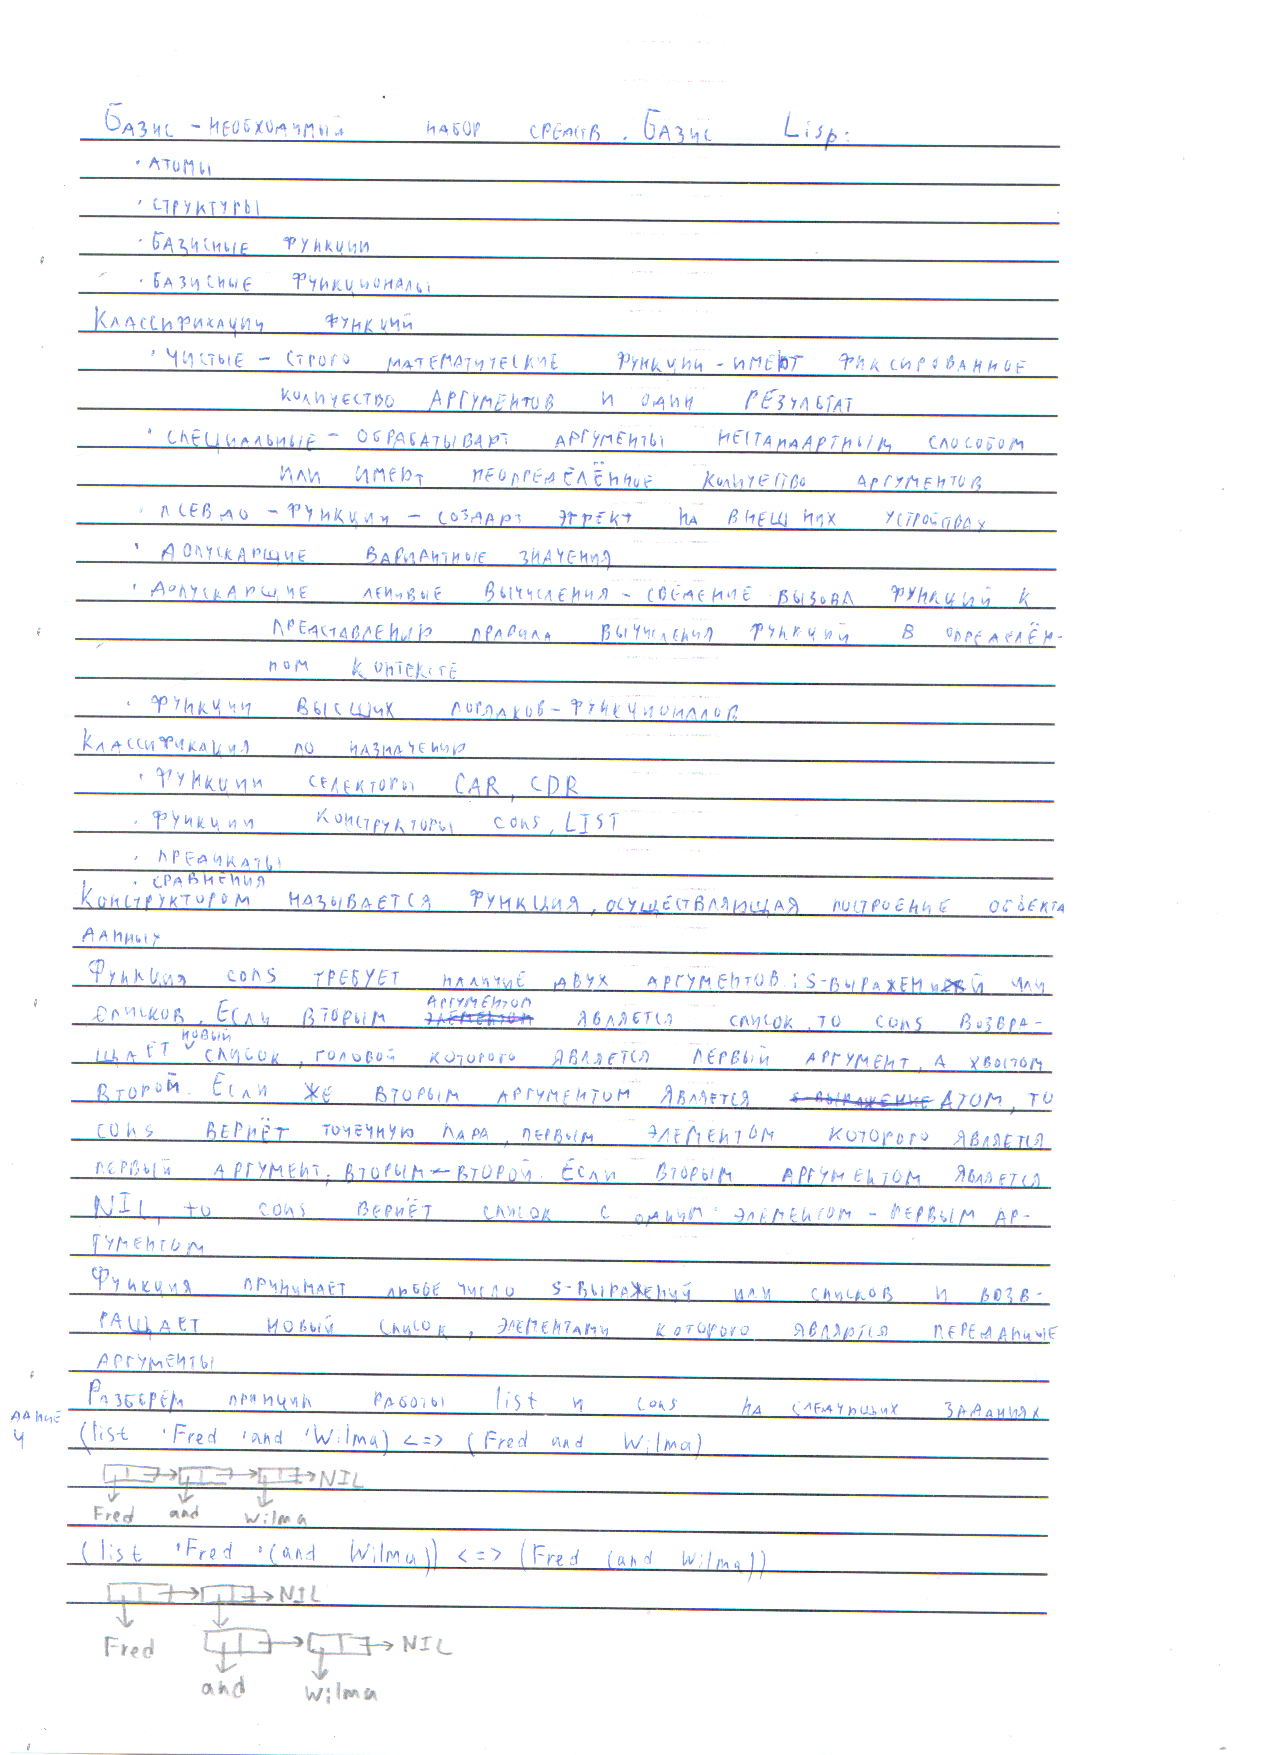 Базис – необходимый набор средств. Базис Lisp:
· атомы
· структуры
· базисные функции
· базисные функционалы
Классификации функций
· чистые – строго математические функции – имеют фиксированное
количество аргументов и один результат
· специальные – обрабатывают аргументы нестандартным способом
или имеют неопределённое количество аргументов
· псевдо – функции – создают эффект на внешних устройствах
· допускающие вариантные значения
· допускающие ленивые вычисления – сведение вызова функций к
представлению правила вычисления функций в определён-
ном контексте
· функции высших порядков – функционалов
Классификация по назначению
· функции селекторы CAR, CDR
· функции конструкторы cons, LIST
· предикаты
· сравнения
Конструктором называется функция, осуществляющая построение объекта
данных
Функция cons требует наличие двух аргументов: S-выражений или
списков. Если вторым аргументом является список, то cons возвра-
щает новый список, головой которого является первый аргумент, а хвостом
второй. Если же вторым аргументом является атом, то
cons вернёт точечную пара, первым элементом которого является
первый аргумент, вторым – второй. Если вторым аргументом является
NIL, то cons вернёт список с одним элементом – первым ар-
гументом
Функция принимает любое число S-выражений или списков и возв-
ращает новый список, элементами которого являются переданные
аргументы
Разберём принцип работы list и cons на следующих заданиях
дание
4
(list 'Fred 'and 'Wilma) <=> (Fred and Wilma)
NIL
Fred and Wilma
(list 'Fred '(and Wilma)) <=> (Fred (and Wilma))
NIL
Fred NIL
and Wilma